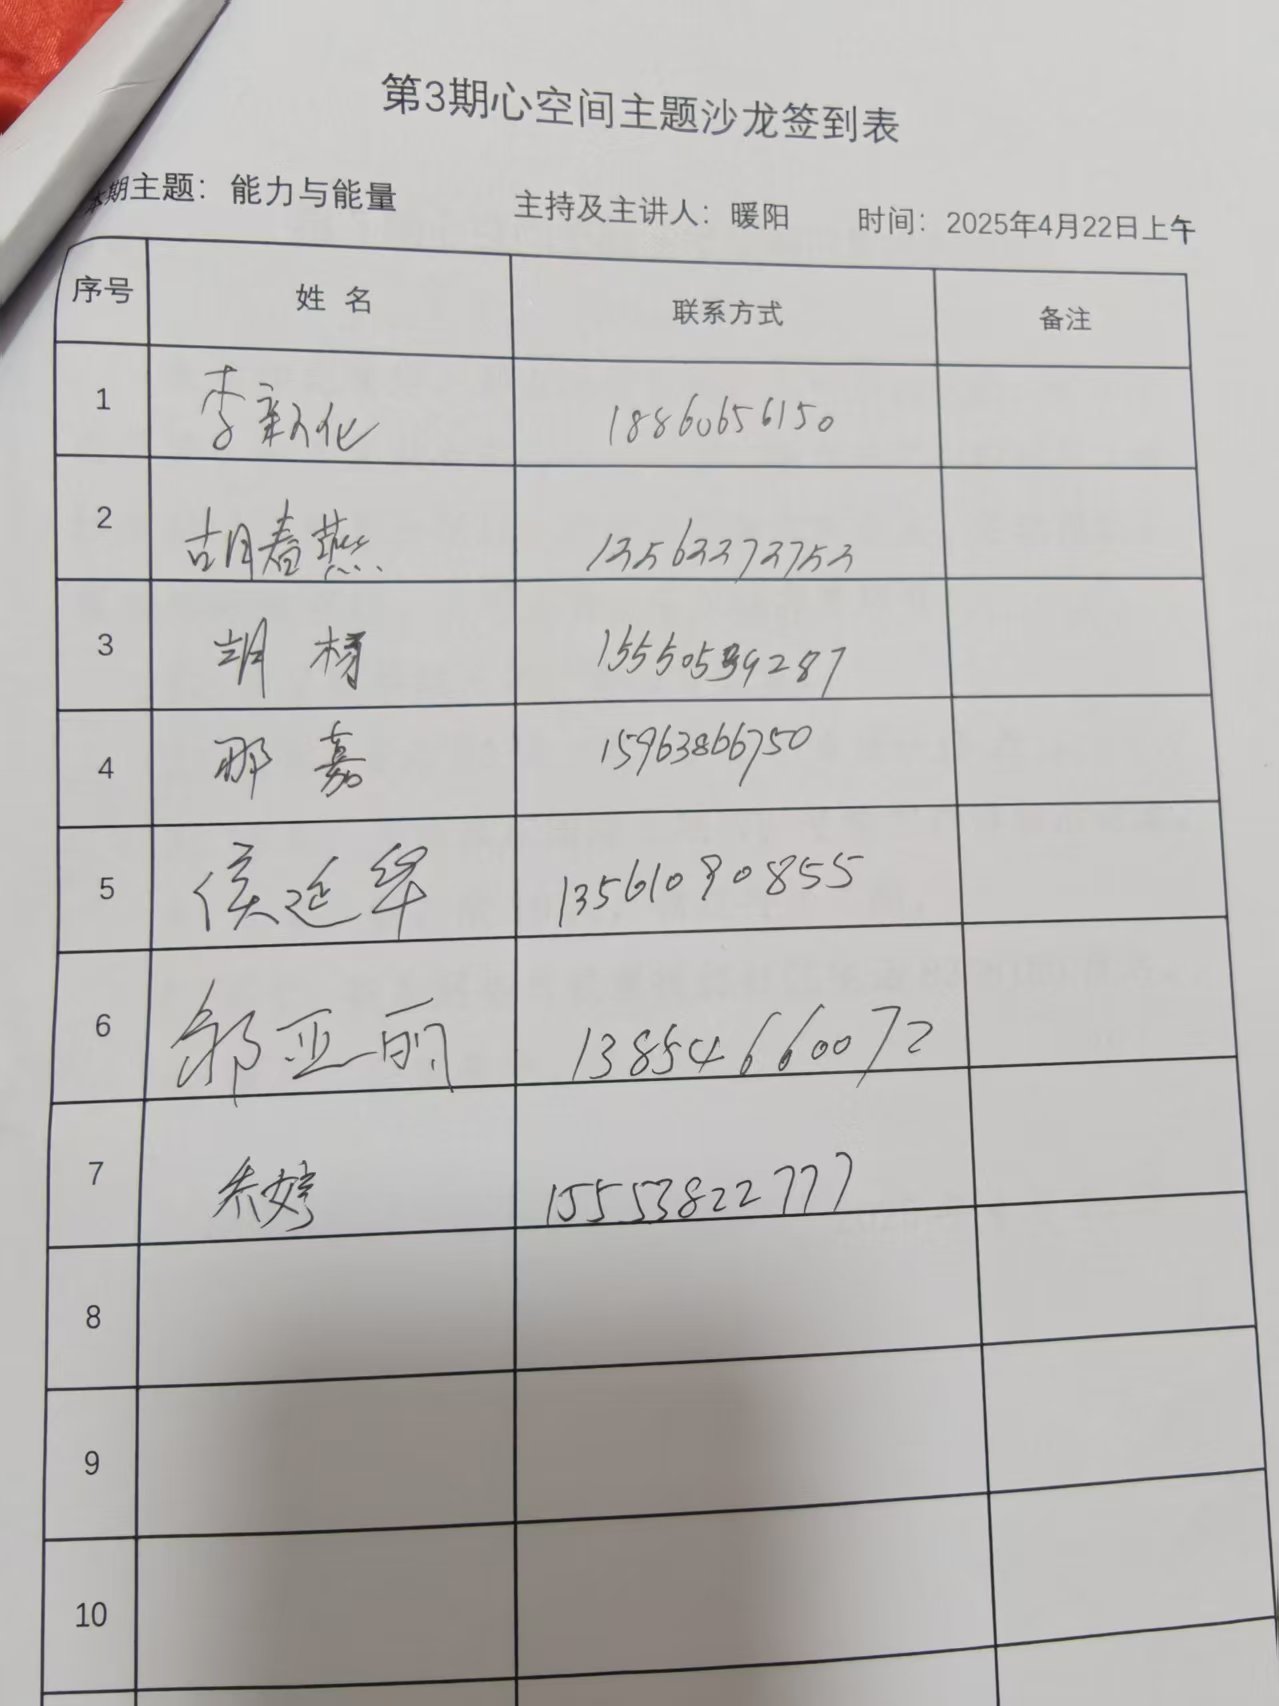 第3期心空间主题沙龙签到表
本期主题：能力与能量 主持及主讲人：暖阳 时间：2025年4月22日上午
序号 姓名 联系方式 备注
1 李新化 18860656150
2 胡春燕
3 胡杨 15550539287
4 那嘉 15963866750
5 侯延华 13561090855
6 郭亚丽 13854660072
7 15553822777
8
9
10